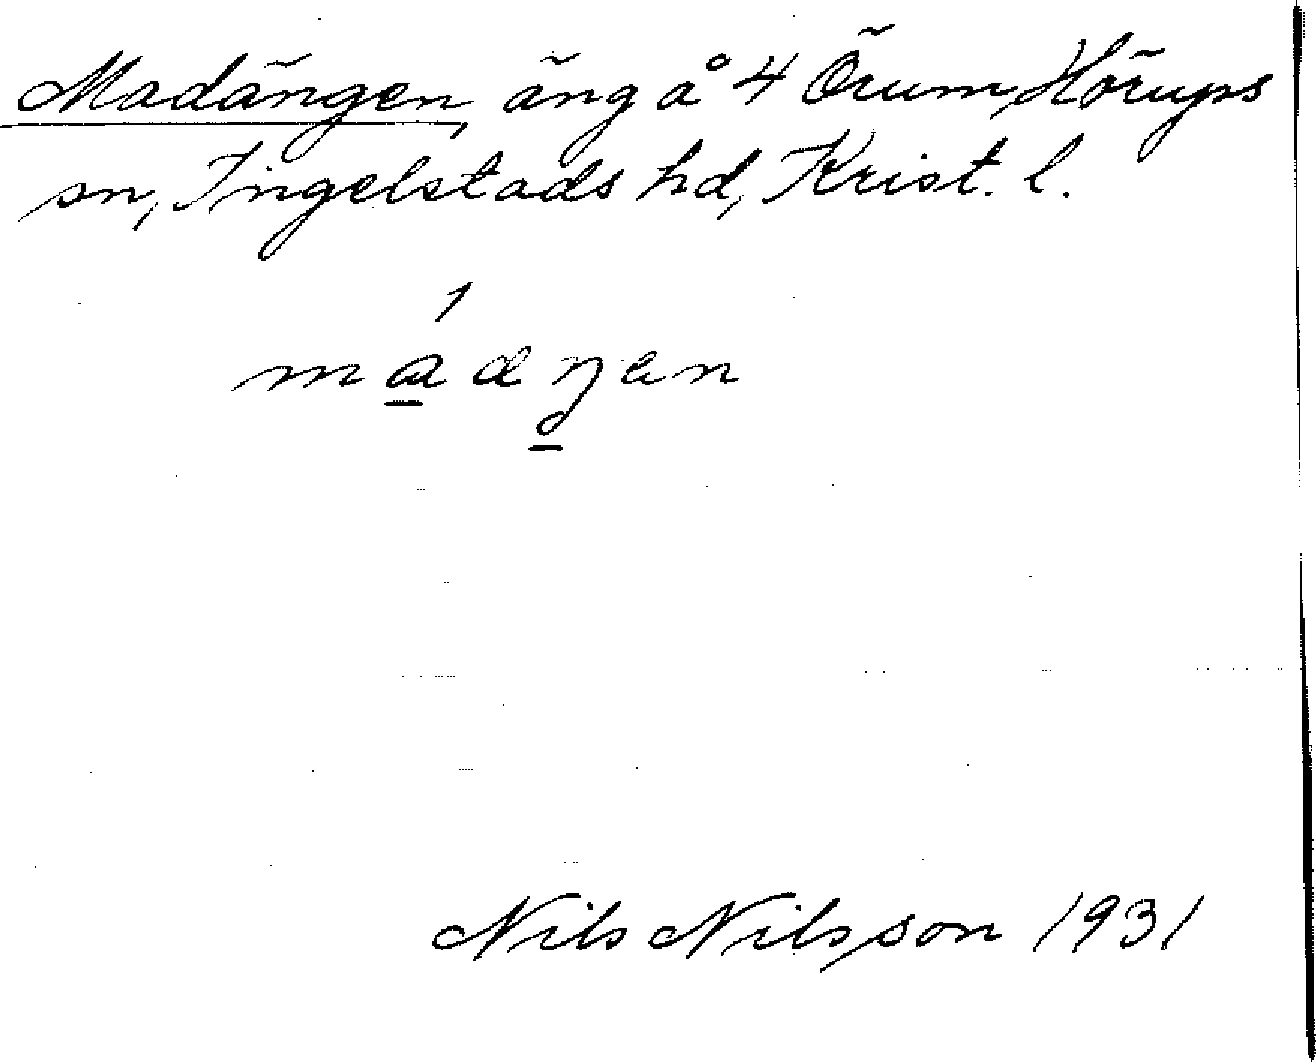 Madängen, äng å 4 Örum, Hörups
sn, Ingelstads hd, Krist. l.
Nils Nilsson 1931